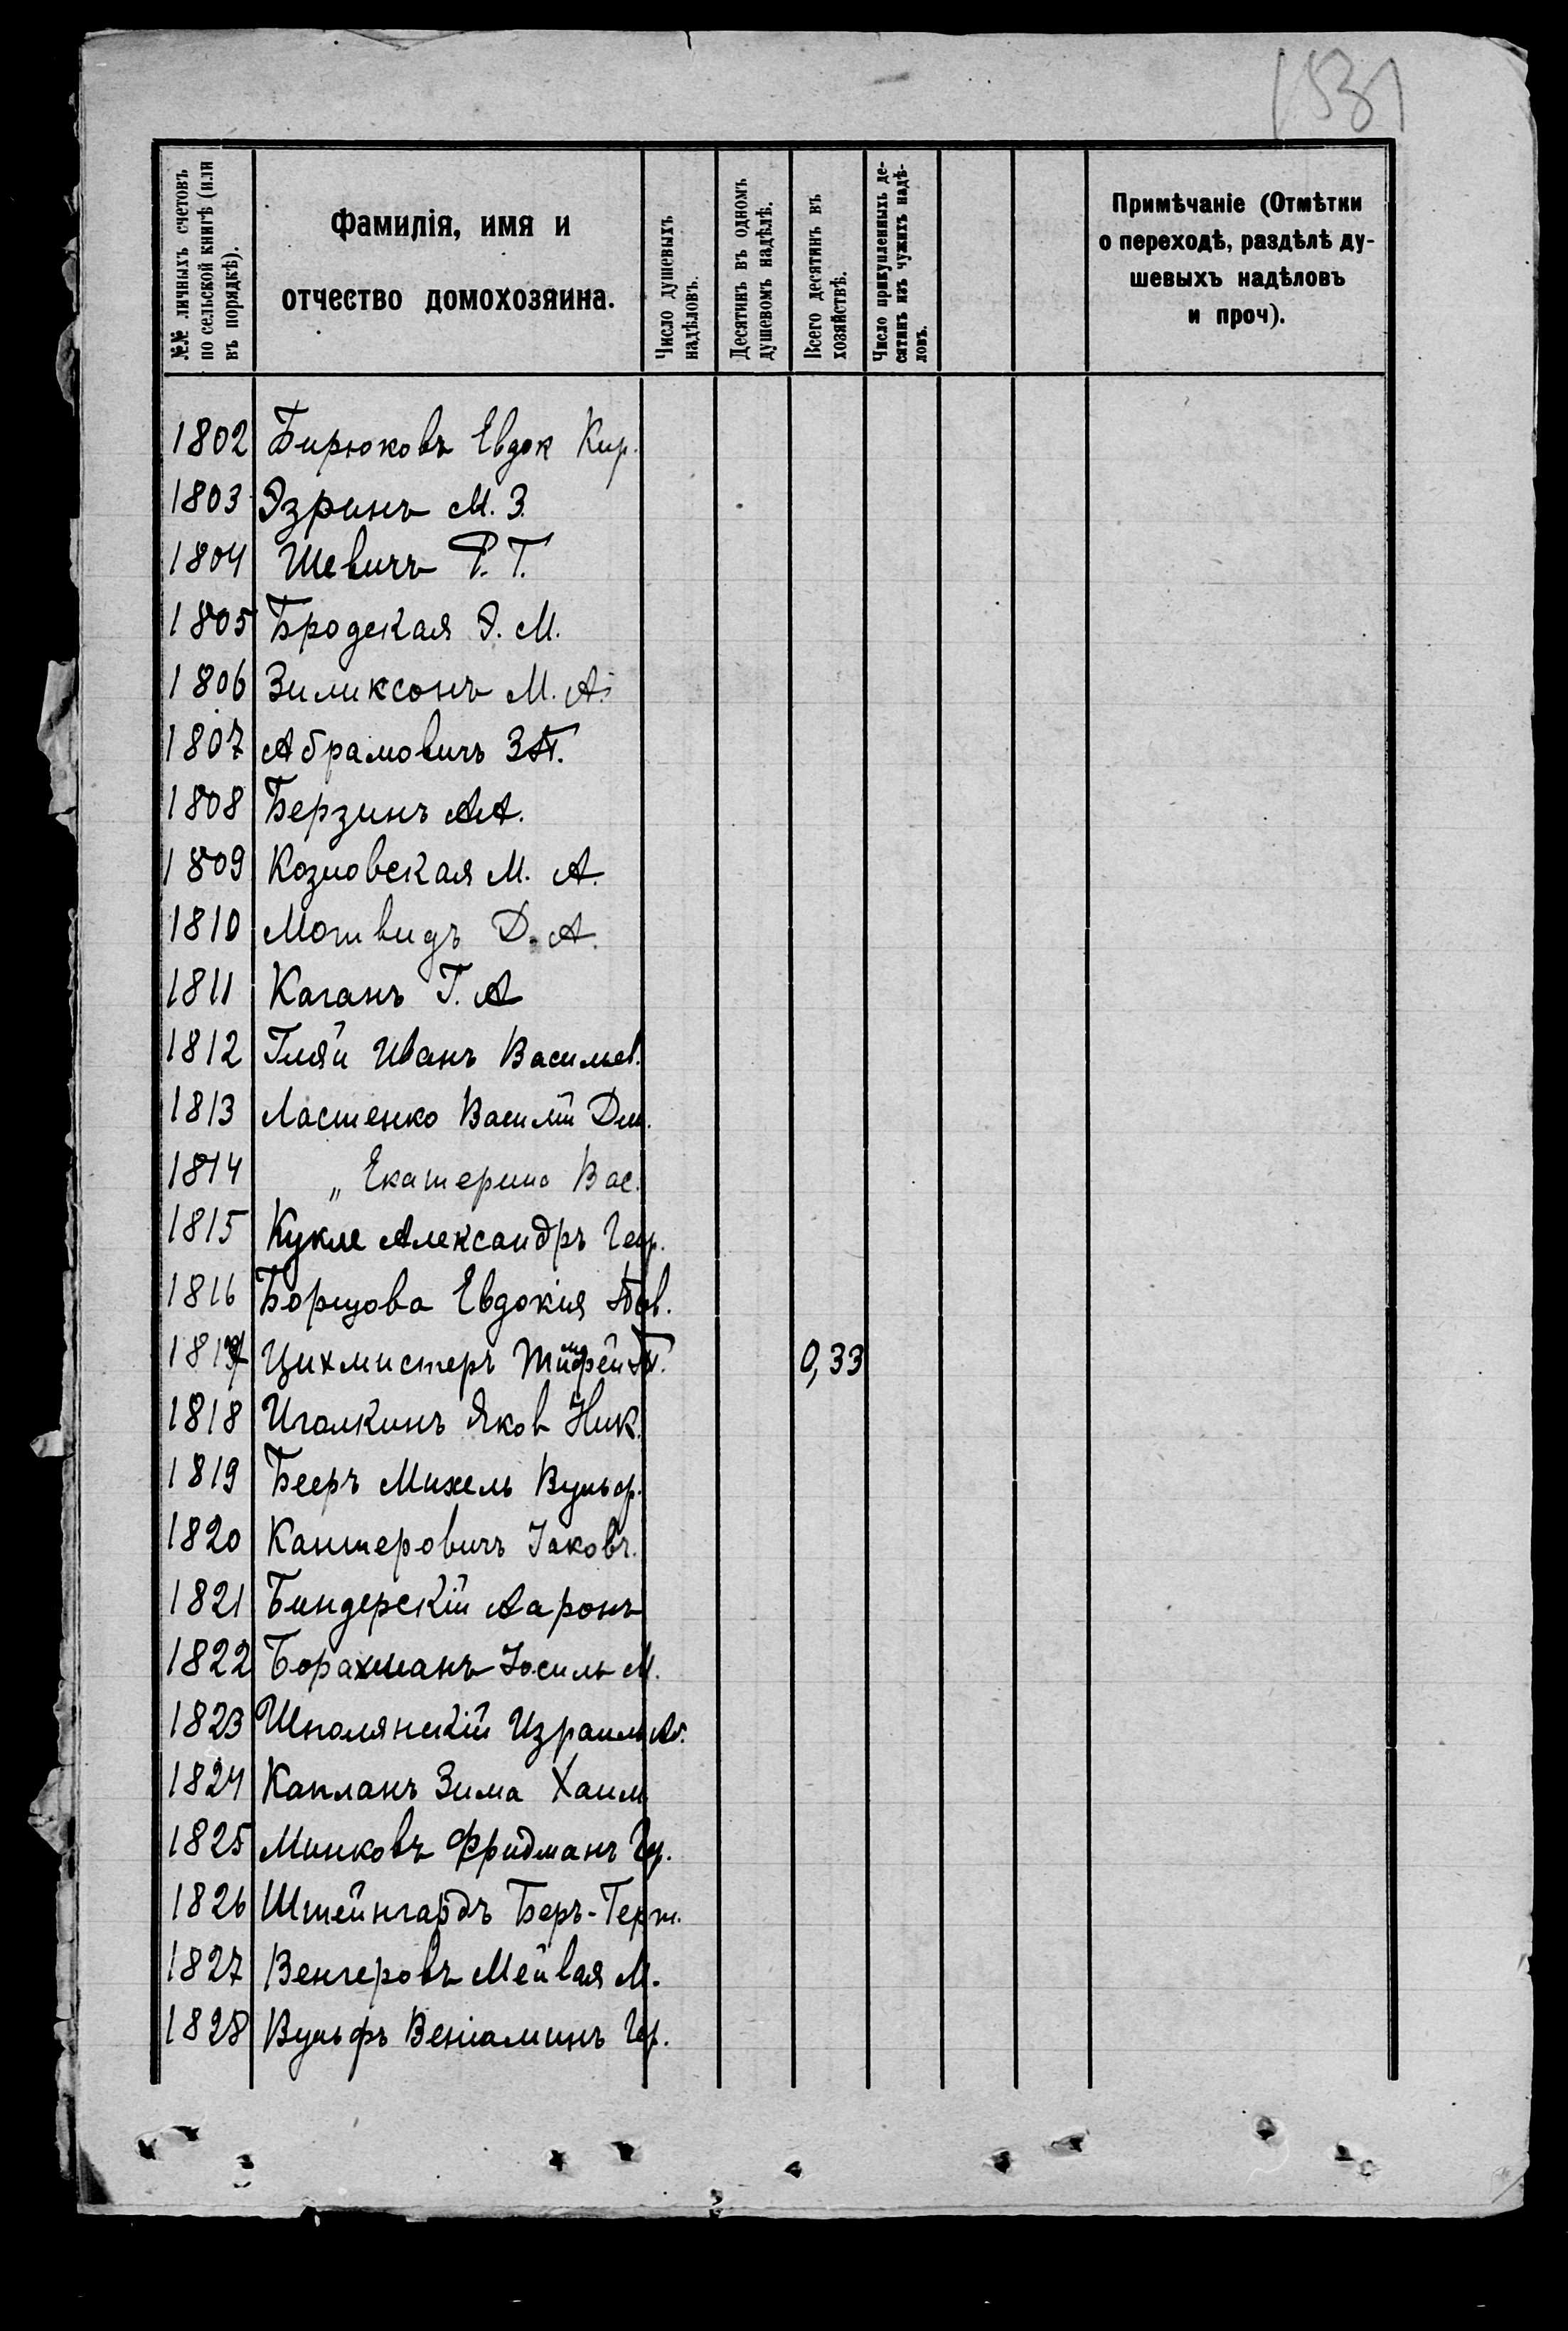 153
№№ личныхъ счетовъ
по сельской книгѣ (или
въ порядкѣ).
Фамилія, имя и
отчество домохозяина.
Число душевыхъ
надѣловъ.
Десятинъ въ одномъ
душевомъ надѣлѣ.
Всего десятинъ въ
хозяйствѣ.
Число прикупленныхъ де-
сятинъ изъ чужихъ надѣ-
ловъ.
Примѣчаніе (Отмѣтки
о переходѣ, раздѣлѣ ду-
шевыхъ надѣловъ
и проч).
1802 Бирюковъ Евдок Кир.
1803 Эзринъ М. З.
1804 Шевичъ Р. Г.
1805 Бродская Э. М.
1806 Зиликсонъ М. А.
1807 Абрамовичъ З.
1808 Берзинъ А.А.
1809 Козловская М. А.
1810 Монтвидъ Д. А.
1811 Каганъ Г. А
1812 Гляй Иванъ Васильев.
1813 Ластенко Василій Дм.
1814 „ Екатерина Вас.
1815 Кукле Александръ Геор.
1816 Борщова Евдокія Пав.
1817 Цихмистеръ Тимофей 0,33
1818 Иголкинъ Яков Ник.
1819 Бееръ Михель Вульф.
1820 Канторовичъ Іаковъ.
1821 Биндерскій Ааронъ
1822 Борахманъ Іосиль М.
1823 Шполянскій Израиль Аб.
1824 Капланъ Зима Хаим
1825 Минковъ Фридманъ
1826 Штейнгардъ Беръ-Герш.
1827 Венгеровъ М.
1828 Вульфъ Веніаминъ Гер.